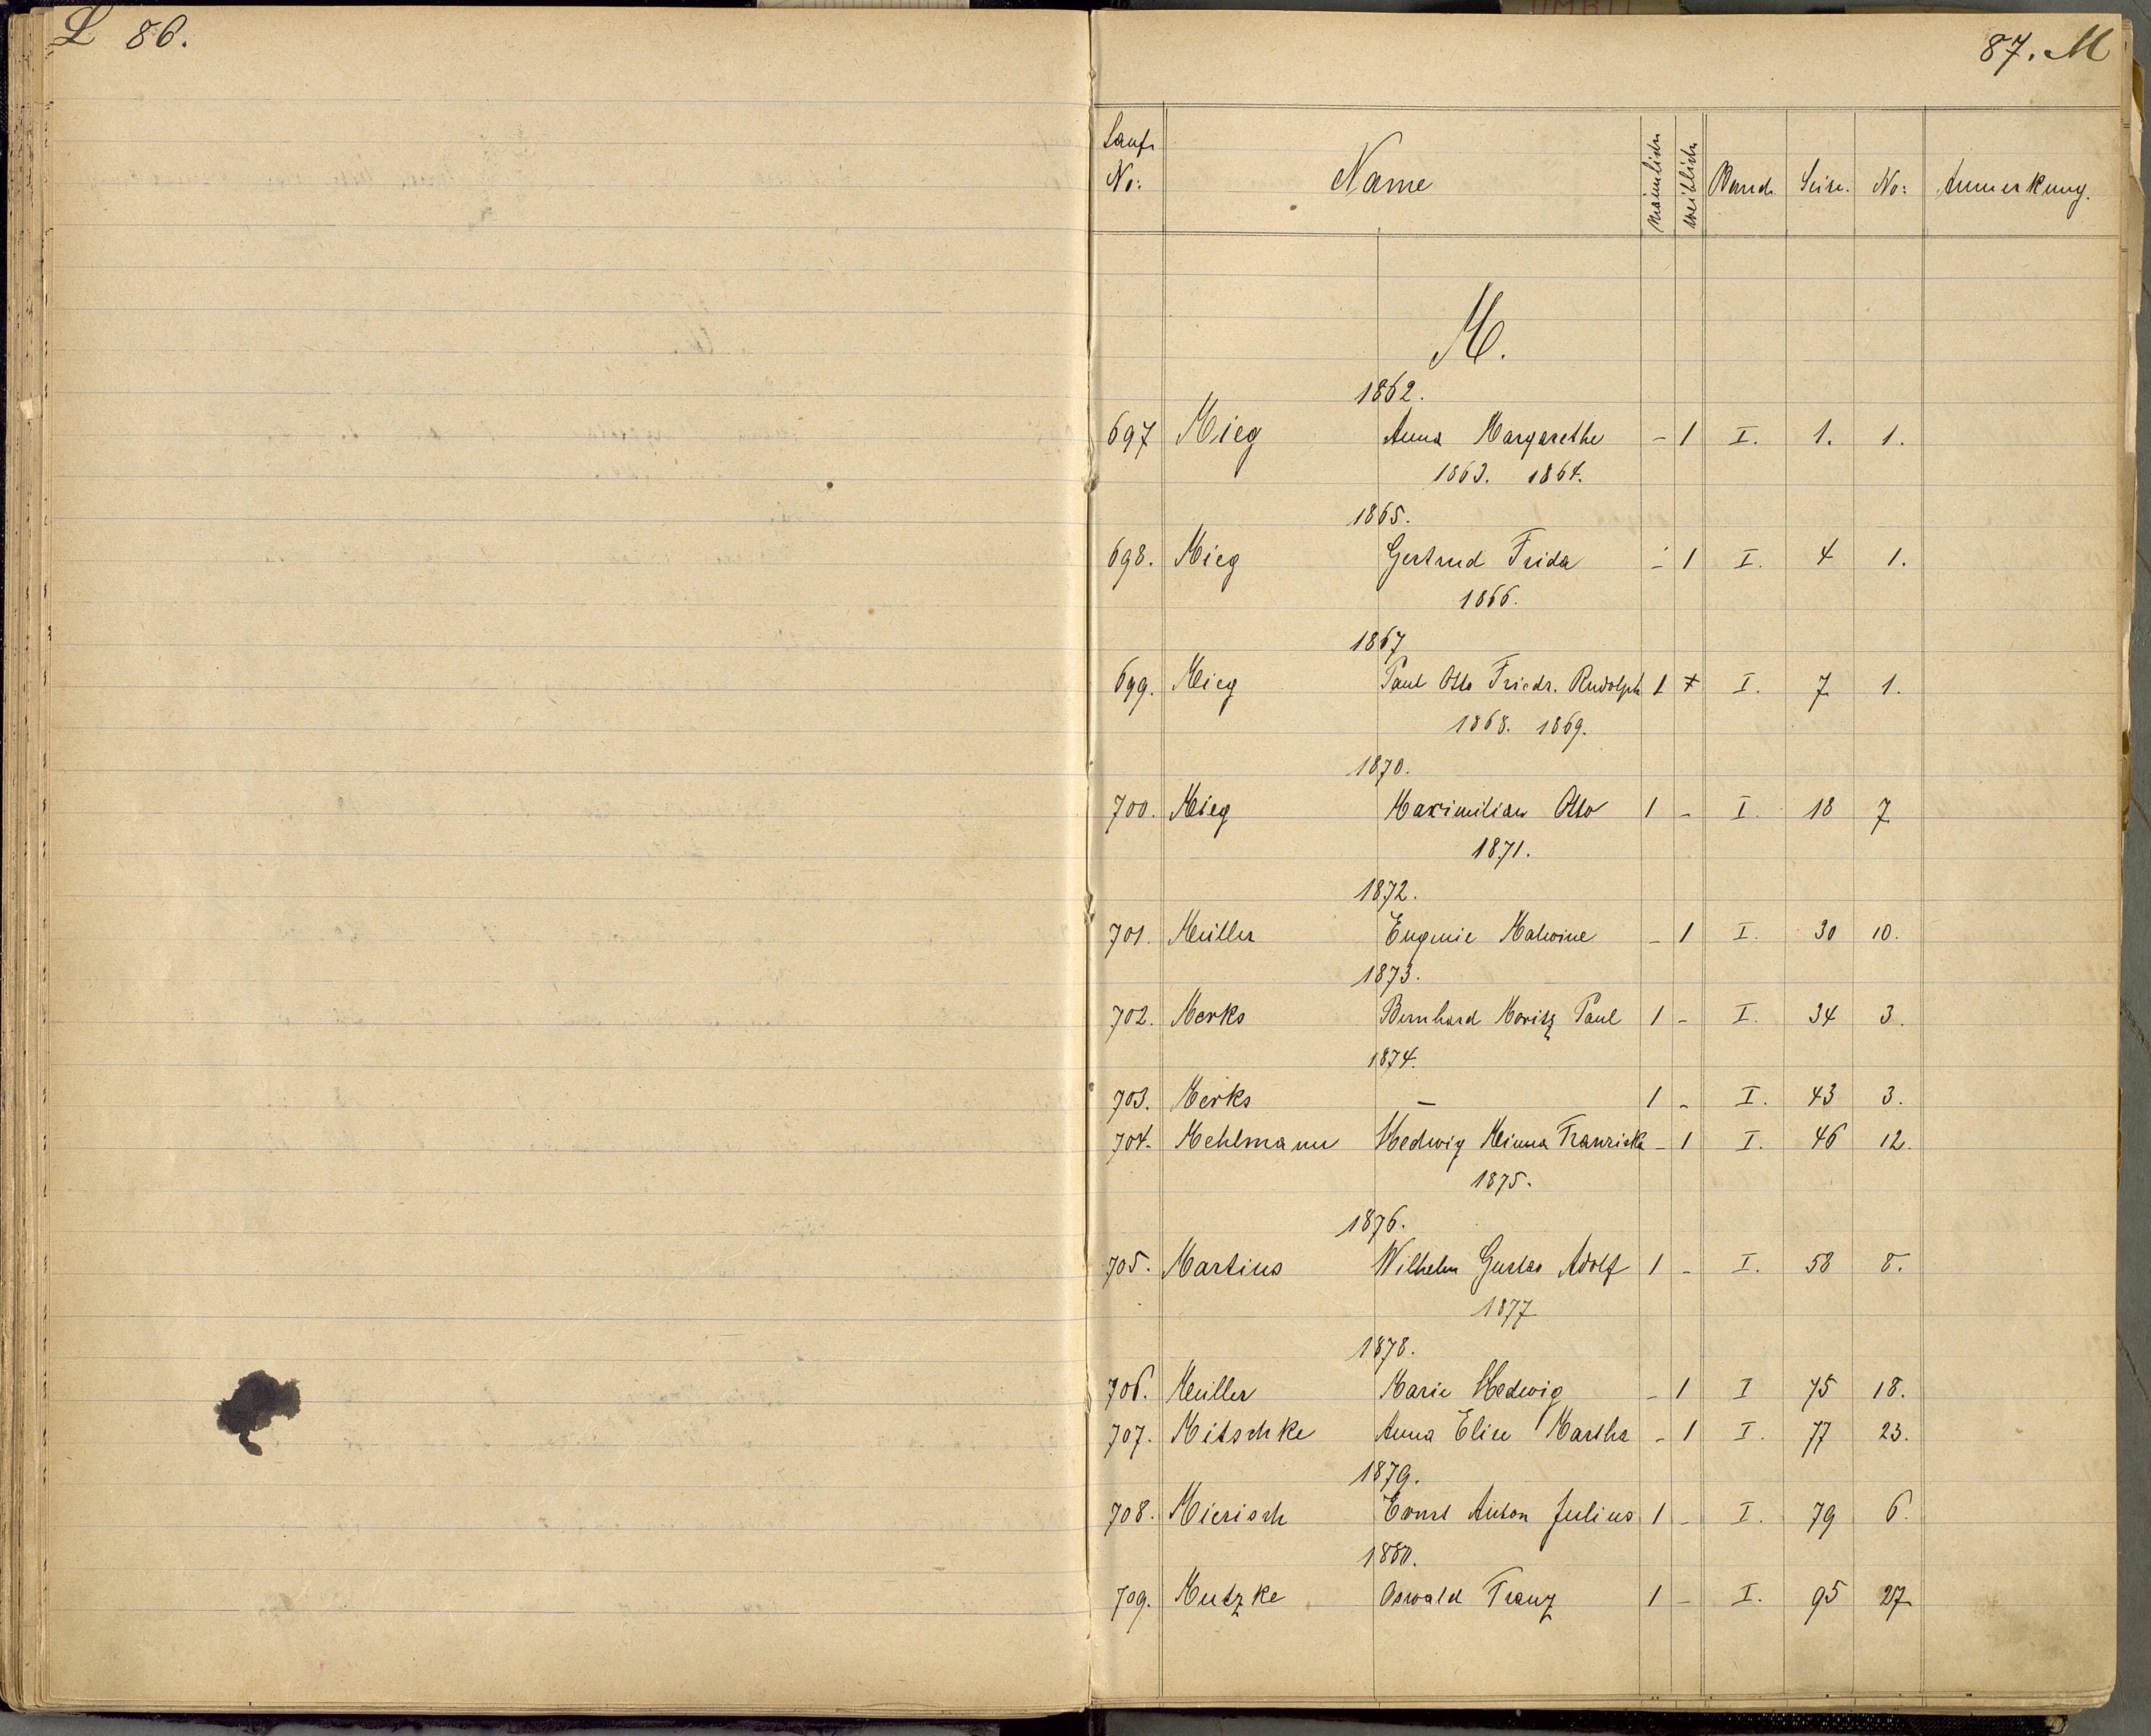 L 86.
87. M
Laufe No: Name männlich weiblich Band. Seite. No: Anmerkung.
M.
1862.
697 Mieg Anna Margarethe - 1 I. 1. 1.
1863. 1864.
1865.
698. Mieg Gertrud Frida - 1 I. 4 1.
1866.
1867
699. Mieg Paul Otto Friedr. Rudolph 1 I. 7 1.
1868. 1869.
1870.
700. Mieg Maximilian Otto 1 - I. 18 7
1871.
1872.
701. Müller Eugenie Malwine - 1 I. 30 10.
1873.
702. Merks Bernhard Moritz Paul 1 - I. 34 3.
1874.
703. Merks — 1 - I. 43 3.
704. Mehlmann Hedwig Minna Franziska - 1 I. 46 12.
1875.
1876.
705. Martius Wilhelm Gustav Adolf 1 - I. 58 8.
1877
1878.
706. Müller Marie Hedwig - 1 I 75 18.
707. Mitschke Anna Elise Martha - 1 I. 77 23.
1879.
708. Mierisch Ernst Anton Julius 1 - I. 79 6.
1880.
709. Mutzke Oswald Franz 1 - I. 95 27